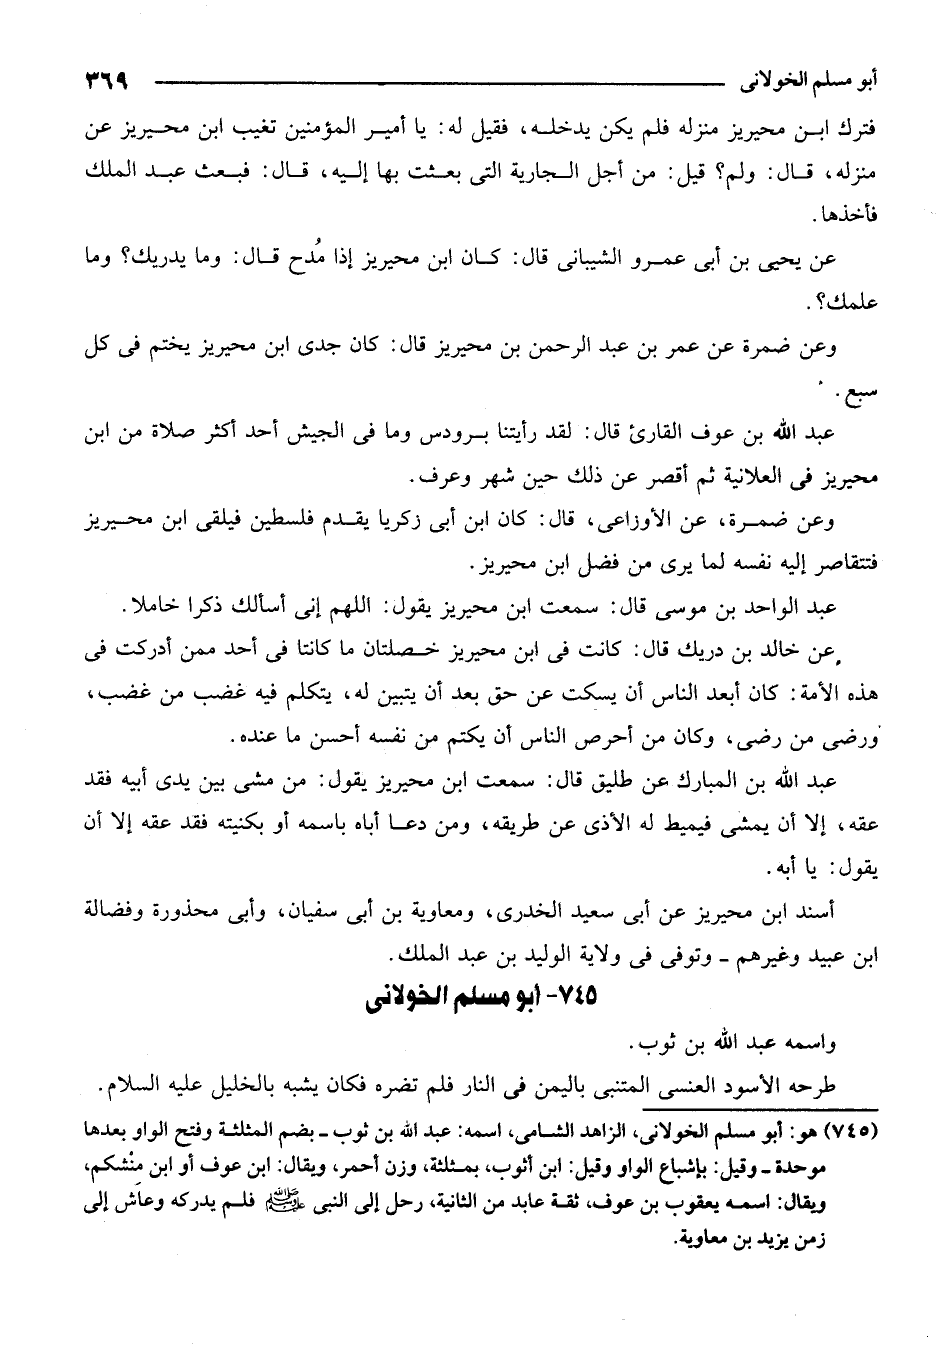 أبو مسلم الخولانى ٣٦٩
فترك ابن محيريز منزله فلم يكن يدخله، فقيل له: يا أمير المؤمنين تغيب ابن محيريز عن
منزله، قال: ولم؟ قيل: من أجل الجارية التى بعثت بها إليه، قال: فبعث عبد الملك
فأخذها.
عن يحيى بن أبى عمرو الشيبانى قال: كان ابن محيريز إذا مُدح قال: وما يدريك؟ وما
علمك؟.
وعن ضمرة عن عمر بن عبد الرحمن بن محيريز قال: كان جدى ابن محيريز يختم فى كل
سبع.
عبد الله بن عوف القارئ قال: لقد رأيتنا برودس وما فى الجيش أحد أكثر صلاة من ابن
محيريز فى العلانية ثم أقصر عن ذلك حين شهر وعرف.
وعن ضمرة، عن الأوزاعى، قال: كان ابن أبى زكريا يقدم فلسطين فيلقى ابن محيريز
فتتقاصر إليه نفسه لما يرى من فضل ابن محيريز.
عبد الواحد بن موسى قال: سمعت ابن محيريز يقول: اللهم إنى أسألك ذكرا خاملا.
عن خالد بن دريك قال: كانت فى ابن محيريز خصلتان ما كانتا فى أحد ممن أدركت فى
هذه الأمة: كان أبعد الناس أن يسكت عن حق بعد أن يتبين له، يتكلم فيه غضب من غضب،
ورضى من رضى، وكان من أحرص الناس أن يكتم من نفسه أحسن ما عنده.
عبد الله بن المبارك عن طليق قال: سمعت ابن محيريز يقول: من مشى بين يدى أبيه فقد
عقه، إلا أن يمشى فيميط له الأذى عن طريقه، ومن دعا أباه باسمه أو بكنيته فقد عقه إلا أن
يقول: يا أبه.
أسند ابن محيريز عن أبى سعيد الخدرى، ومعاوية بن أبى سفيان، وأبى محذورة وفضالة
ابن عبيد وغيرهم ـ وتوفى فى ولاية الوليد بن عبد الملك.
٧٤٥- أبو مسلم الخولانى
واسمه عبد الله بن ثوب.
طرحه الأسود العنسى المتنبى باليمن فى النار فلم تضره فكان يشبه بالخليل عليه السلام.
(٧٤٥) هو: أبو مسلم الخولانى، الزاهد الشامى، اسمه: عبد الله بن ثوب ـ بضم المثلثة وفتح الواو بعدها
موحدة ـ وقيل: بإشباع الواو وقيل: ابن أثوب، بمثلثة، وزن أحمر، ويقال: ابن عوف أو ابن مِنْشكم،
ويقال: اسمه يعقوب بن عوف، ثقة عابد من الثانية، رحل إلى النبى ﷺ فلم يدركه وعاش إلى
زمن يزيد بن معاوية.